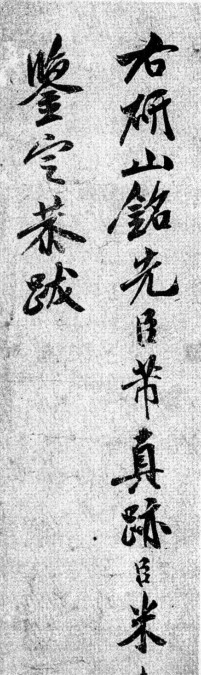 右研山銘先臣芾真跡臣米
鑒定恭跋